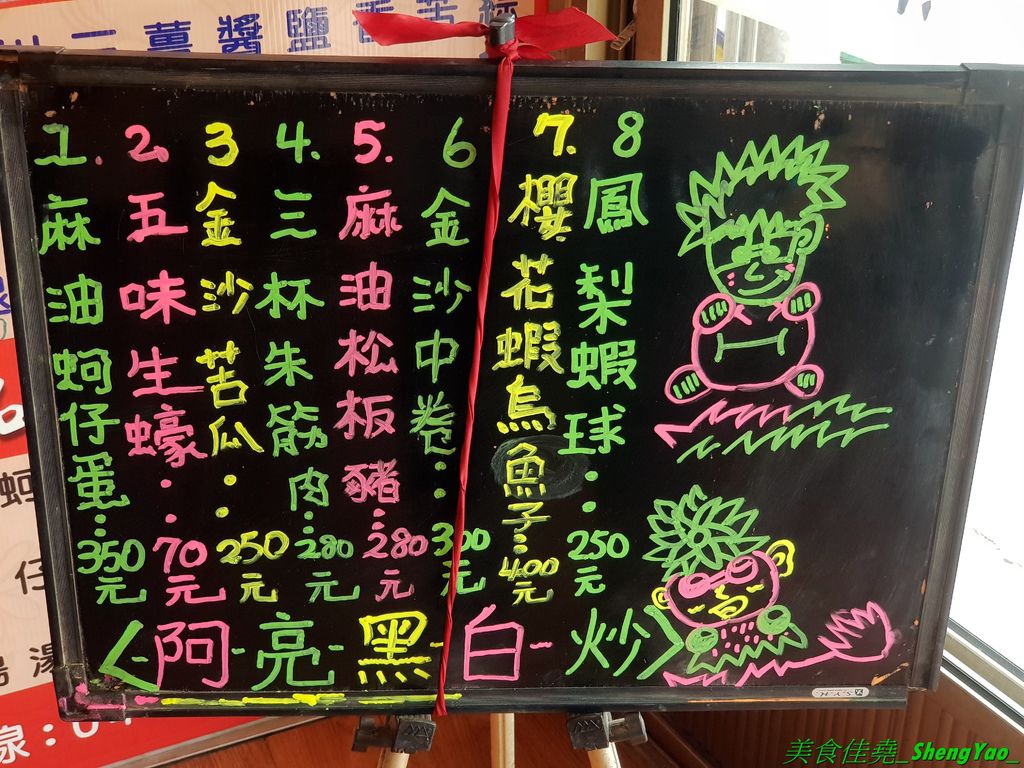 三薑醬鹽香苦
1. 麻油蚵仔蛋:350元
2. 五味生蠔:70元
3 金沙苦瓜:250元
4. 三杯朱筋肉:280元
5. 麻油松板豬:280元
6 金沙中卷:300元
7. 櫻花蝦烏魚子:400元
8 鳳梨蝦球:250元
〈-阿-亮-黑-白-炒〉
蚵
仔
湯
泉:0
美食佳堯_ShengYao_